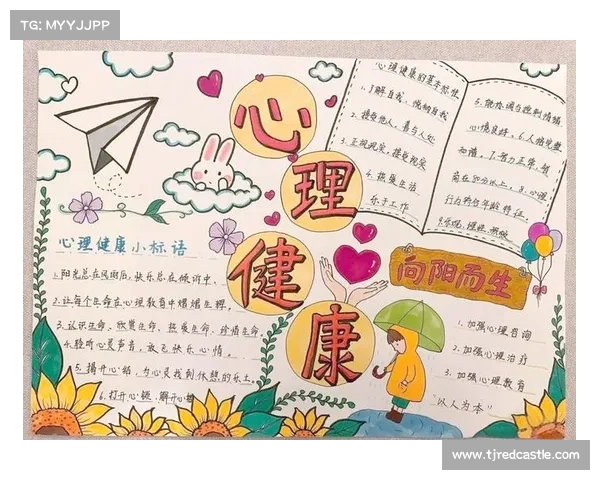 TG: MYYJJPP
心
理
健
康
心理健康的基本标准
1.了解自我、悦纳自我
2.接受他人,善与人处
3.正视现实,接受现实
4.热爱生活
乐于工作
5.能协调与控制情绪
心境良好。6.人格完整
和谐。7.智力正常,智
商在80分以上。8.心理
行为符合年龄特征。
向阳而生
1.加强心理咨询
2.加强心理治疗
3.加强心理教育
"以人为本"
心理健康小标语
1.阳光总在风雨后,快乐总在倾诉中.
2.让每个生命在心理教育中熠熠生辉。
3.认识生命、欣赏生命、热爱生命、珍惜生命。
4.聆听心灵声音,放飞快乐心情。
5.揭开心的,为心灵找到休憩的乐土。
6.打开心锁,解开心
www.tjredcastle.com